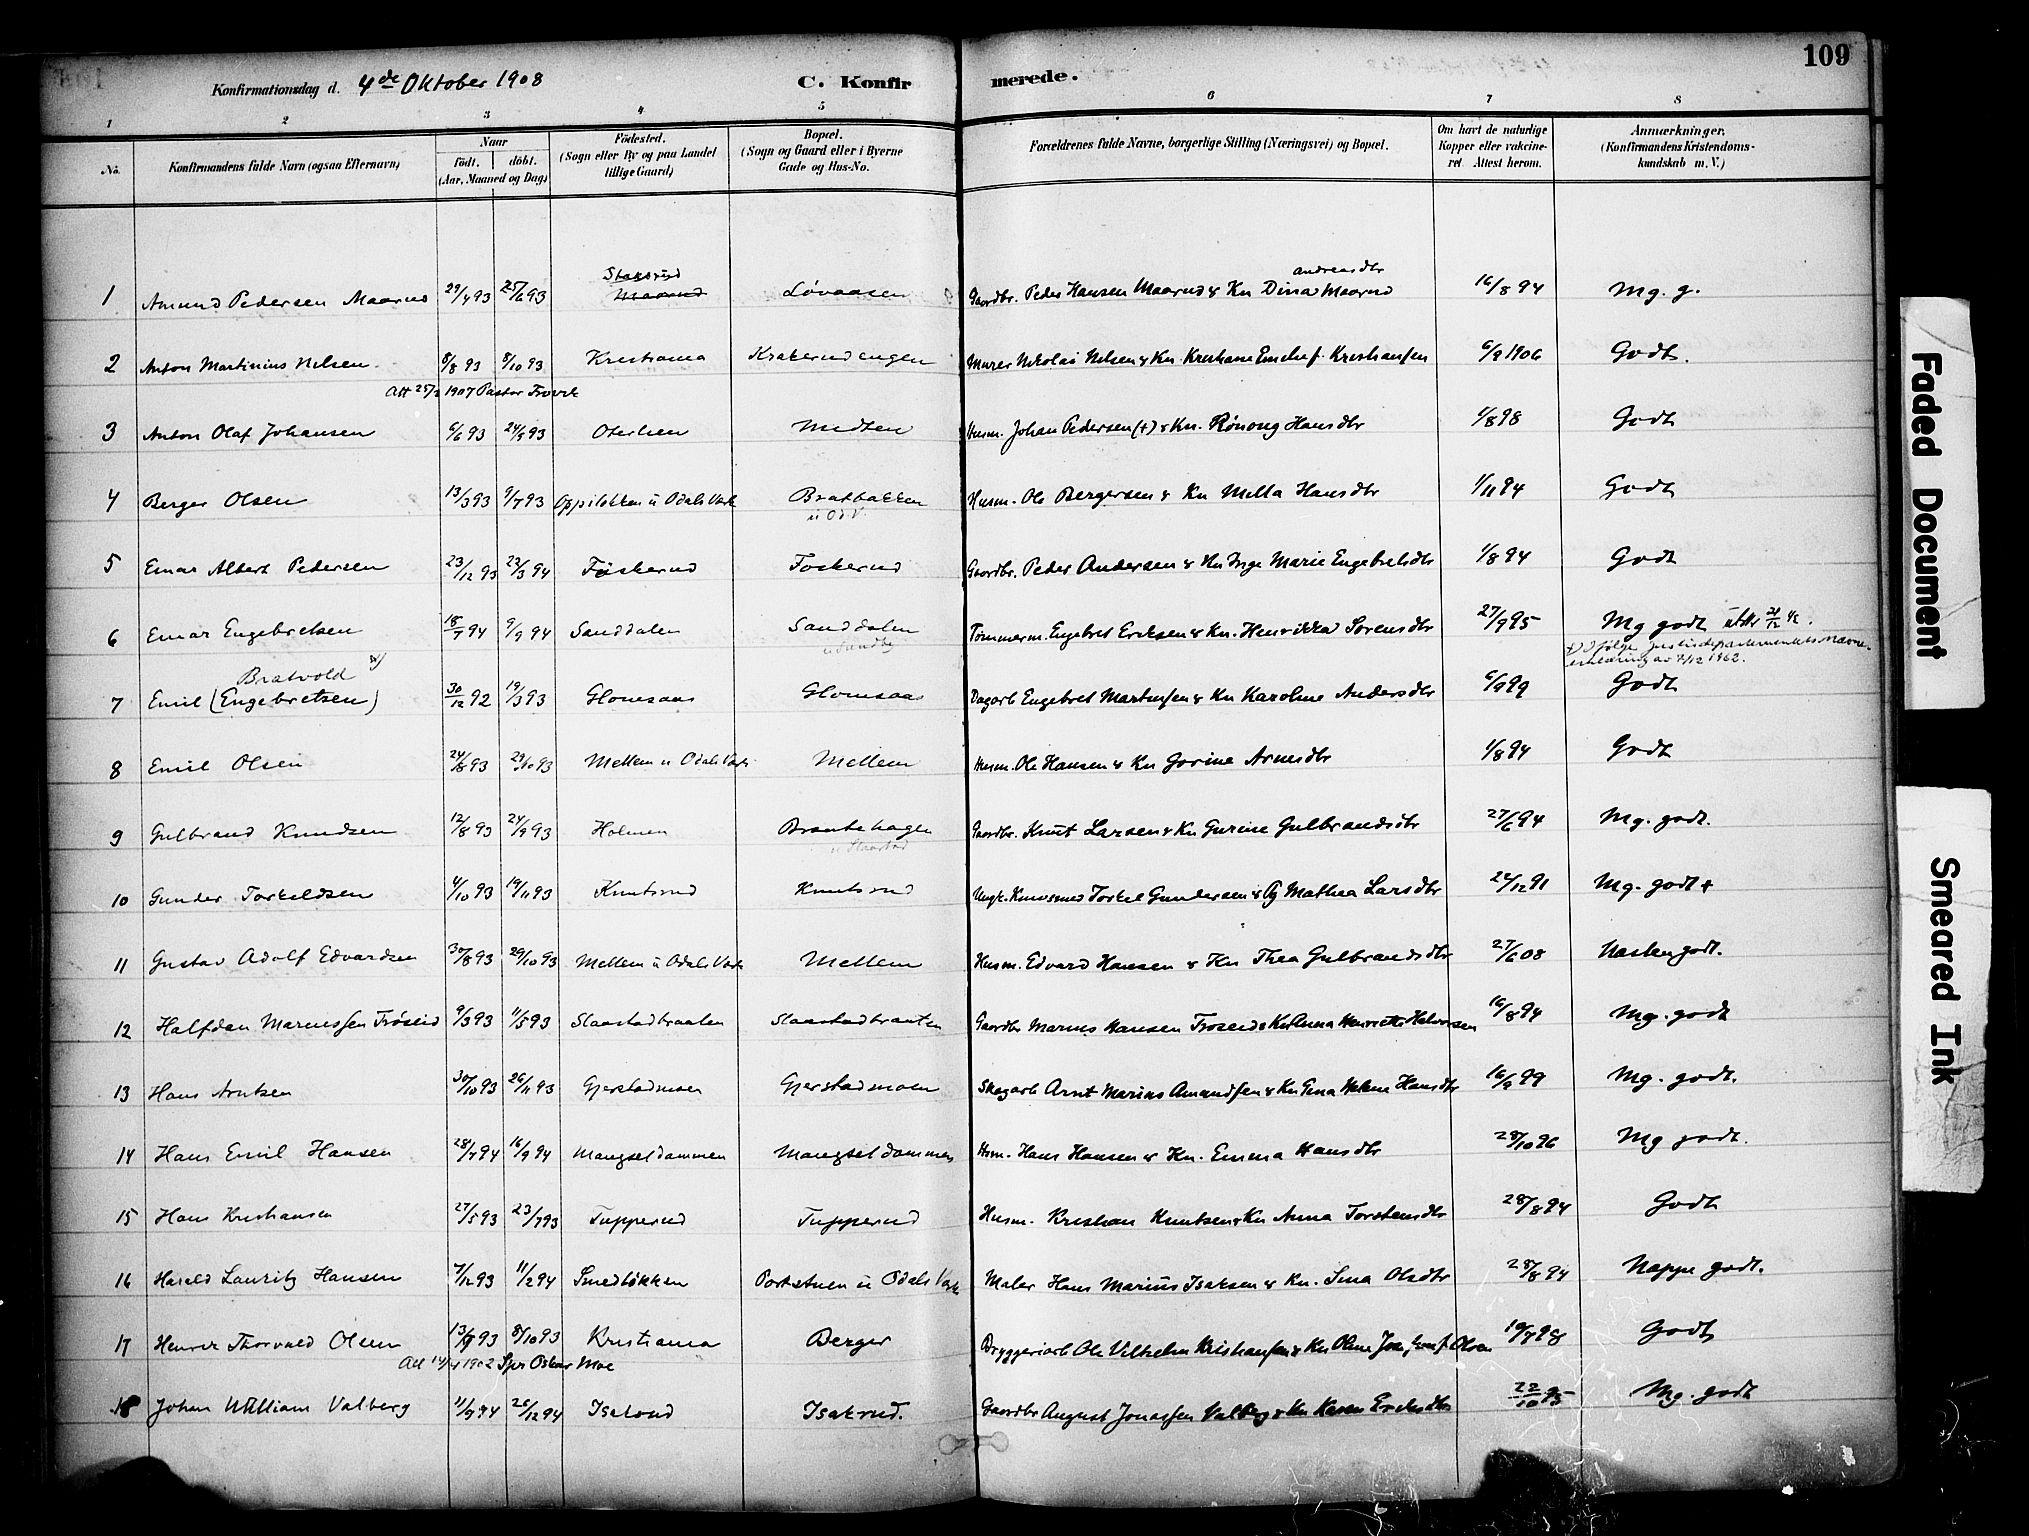 109
Konfirmationsdag d. 4de Oktober 1908 C. Konfirmerede.
1 2 3 4 5 6 7 8
No. Konfirmandens fulde Navn (ogsaa Efternavn) Naar födt. döbt. (Aar, Maaned og Dag) Födested. (Sogn eller By og paa Landet tillige Gaard) Bopæl. (Sogn og Gaard eller i Byerne Gade og Hus-No. Forældrenes fulde Navne, borgerlige Stilling (Næringsvei) og Bopæl. Om havt de naturlige Kopper eller vakcineret. Attest herom. Anmærkninger. (Konfirmandens Kristendomskundskab m. V.)
Staksrud Andreasdtr
1 Amund Pedersen Maarud 29/4 93 25/6 93 Maarud Løvaasen Gaardbr. Peder Hansen Maarud & Kn Dina Maarud 16/8 94 Mg. g.
2 Anton Martinius Nilsen 8/8 93 8/10 93 Kristiania Krakerudengen Murer Nikolai Nilsen & Kn. 6/9 1906 Godt.
Att 25/2 1907 Pastor
3 Anton Olaf Johansen 6/6 93 24/5 93 Johan Pedersen (+) & Kn. Rönoug Hansdtr 1/8 98 Godt
4 Berger Olsen 13/3 93 9/7 93 Oppiløkken u Odals Værk Bratbakken Husm. Ole Bergersen & Kn Milla Hansdtr 1/11 94 Godt
u Od. V.
5 Einar Albert Pedersen 23/12 93 23/3 94 Föskerud Foskerud Gaardbr. Peder Andersen & Kn Inge Marie Engebretsdtr 1/8 94 Godt
6 Einar Engebretsen 18/7 94 9/9 94 Sanddalen Sanddalen Tømmerm. Engebret Eriksen & Kn. Henrikka Sorensdtr 27/9 95 Mg godt
u Sandby
x) I følge Justisdepartementets navne-
Bratvold x)
7 Emil (Engebretsen) 30/12 92 19/3 93 Glomsaas Glomsaas Dagarb Engebret Martinsen & Kn Karoline Andersdtr 6/9 99 Godt
8 Emil Olsen 24/8 93 29/10 93 Mellem u Odals Værk Mellem Husm. Ole Hansen & Kn Gorine Arnesdtr 1/8 94 Godt
9 Gulbrand Knudsen 12/8 93 24/9 93 Holmen Braatehagen Gaardbr. Knut Larsen & Kn Gurine Gulbrandsdtr 27/6 94 Mg. godt.
u Slaastad
10 Gunder Torkeldsen 4/10 93 19/11 93 Knutsrud Knutsrud Ungk. Torkel Gundersen & Pg Mathea Larsdtr 24/12 91 Mg. godt +
11 Gustav Adolf Edvardsen 30/8 93 29/10 93 Mellem u Odals Værk Mellem Husm. Edvard Hansen & Kn Thea Gulbrandsdtr 27/6 08 Næsten godt.
12 Halfdan Mariussen Trøseid 9/3 93 11/5 93 Slaastadbraaten Slaastadbraaten Gaardbr Marius Hansen Troseid & Kn Anna Henriette Halvorsen 16/8 94 Mg. godt
13 Hans Arntsen 30/10 93 26/11 93 Gjerstadmoen Gjerstadmoen Skogarb Arnt Marius Amundsen & Kn Tina Helene Hansdtr 16/9 99 Mg. godt.
14 Hans Emil Hansen 28/7 94 16/9 94 Mangseldammen Mangseldammen Hsm. Hans Hansen & Kn. Emma Hansdtr 28/10 96 Mg godt.
15 Hans Kristiansen 27/5 93 23/7 93 Tupperud Tupperud Husm. Kristian Knutsen & Kn Anna Torstensdtr 28/8 94 Godt
16 Harald Lauritz Hansen 7/12 93 11/2 94 Smedløkken Portstuen u Odals Værk Maler Hans Marius Isaksen & Kn. Sina Olsdtr 28/8 94 Nappe godt.
17 Henrik Thorvald Olsen 13/9 93 8/10 93 Kristiania Berger Bryggeriarb Ole Vilhelm Kristiansen & Kn Oline 19/7 98 Godt
Att 14/4 1902 Spr Oskar Moe
18 Johan William Valberg 11/9 94 26/12 94 Isakrud Isakrud. Gaardbr August Jonassen Valberg & Kn Karen Eriksdtr 22/10 95 Mg. godt
Faded Document
Smeared Ink